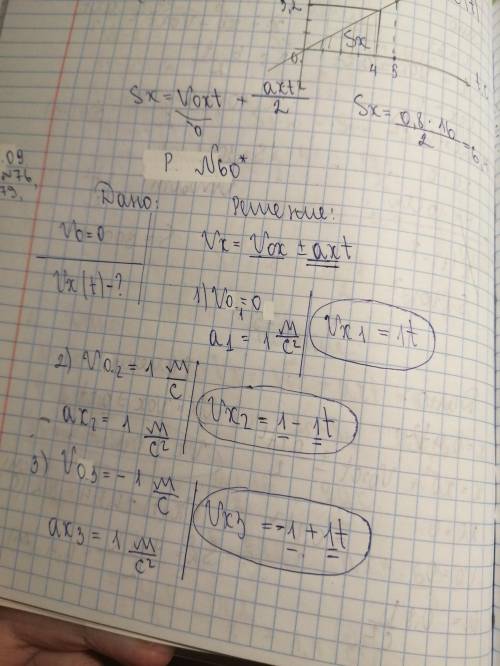 3,2
Sx
0
4 8
t, c
Sx = V₀xt + axt²/2
0
Sx = 0,8 · 16/2 = 6,
.09
№76,
79.
Р. №60*
Дано: Решение:
V₀=0
Vx = V₀x ± axt
Vx(t)-?
1) V₀.₁ = 0
a₁ = 1 м/с²
Vx₁ = 1t
2) V₀.₂ = 1 м/с
- ax₂ = 1 м/с²
Vx₂ = 1 - 1t
3) V₀.₃ = -1 м/с
ax₃ = 1 м/с²
Vx₃ = -1 + 1t